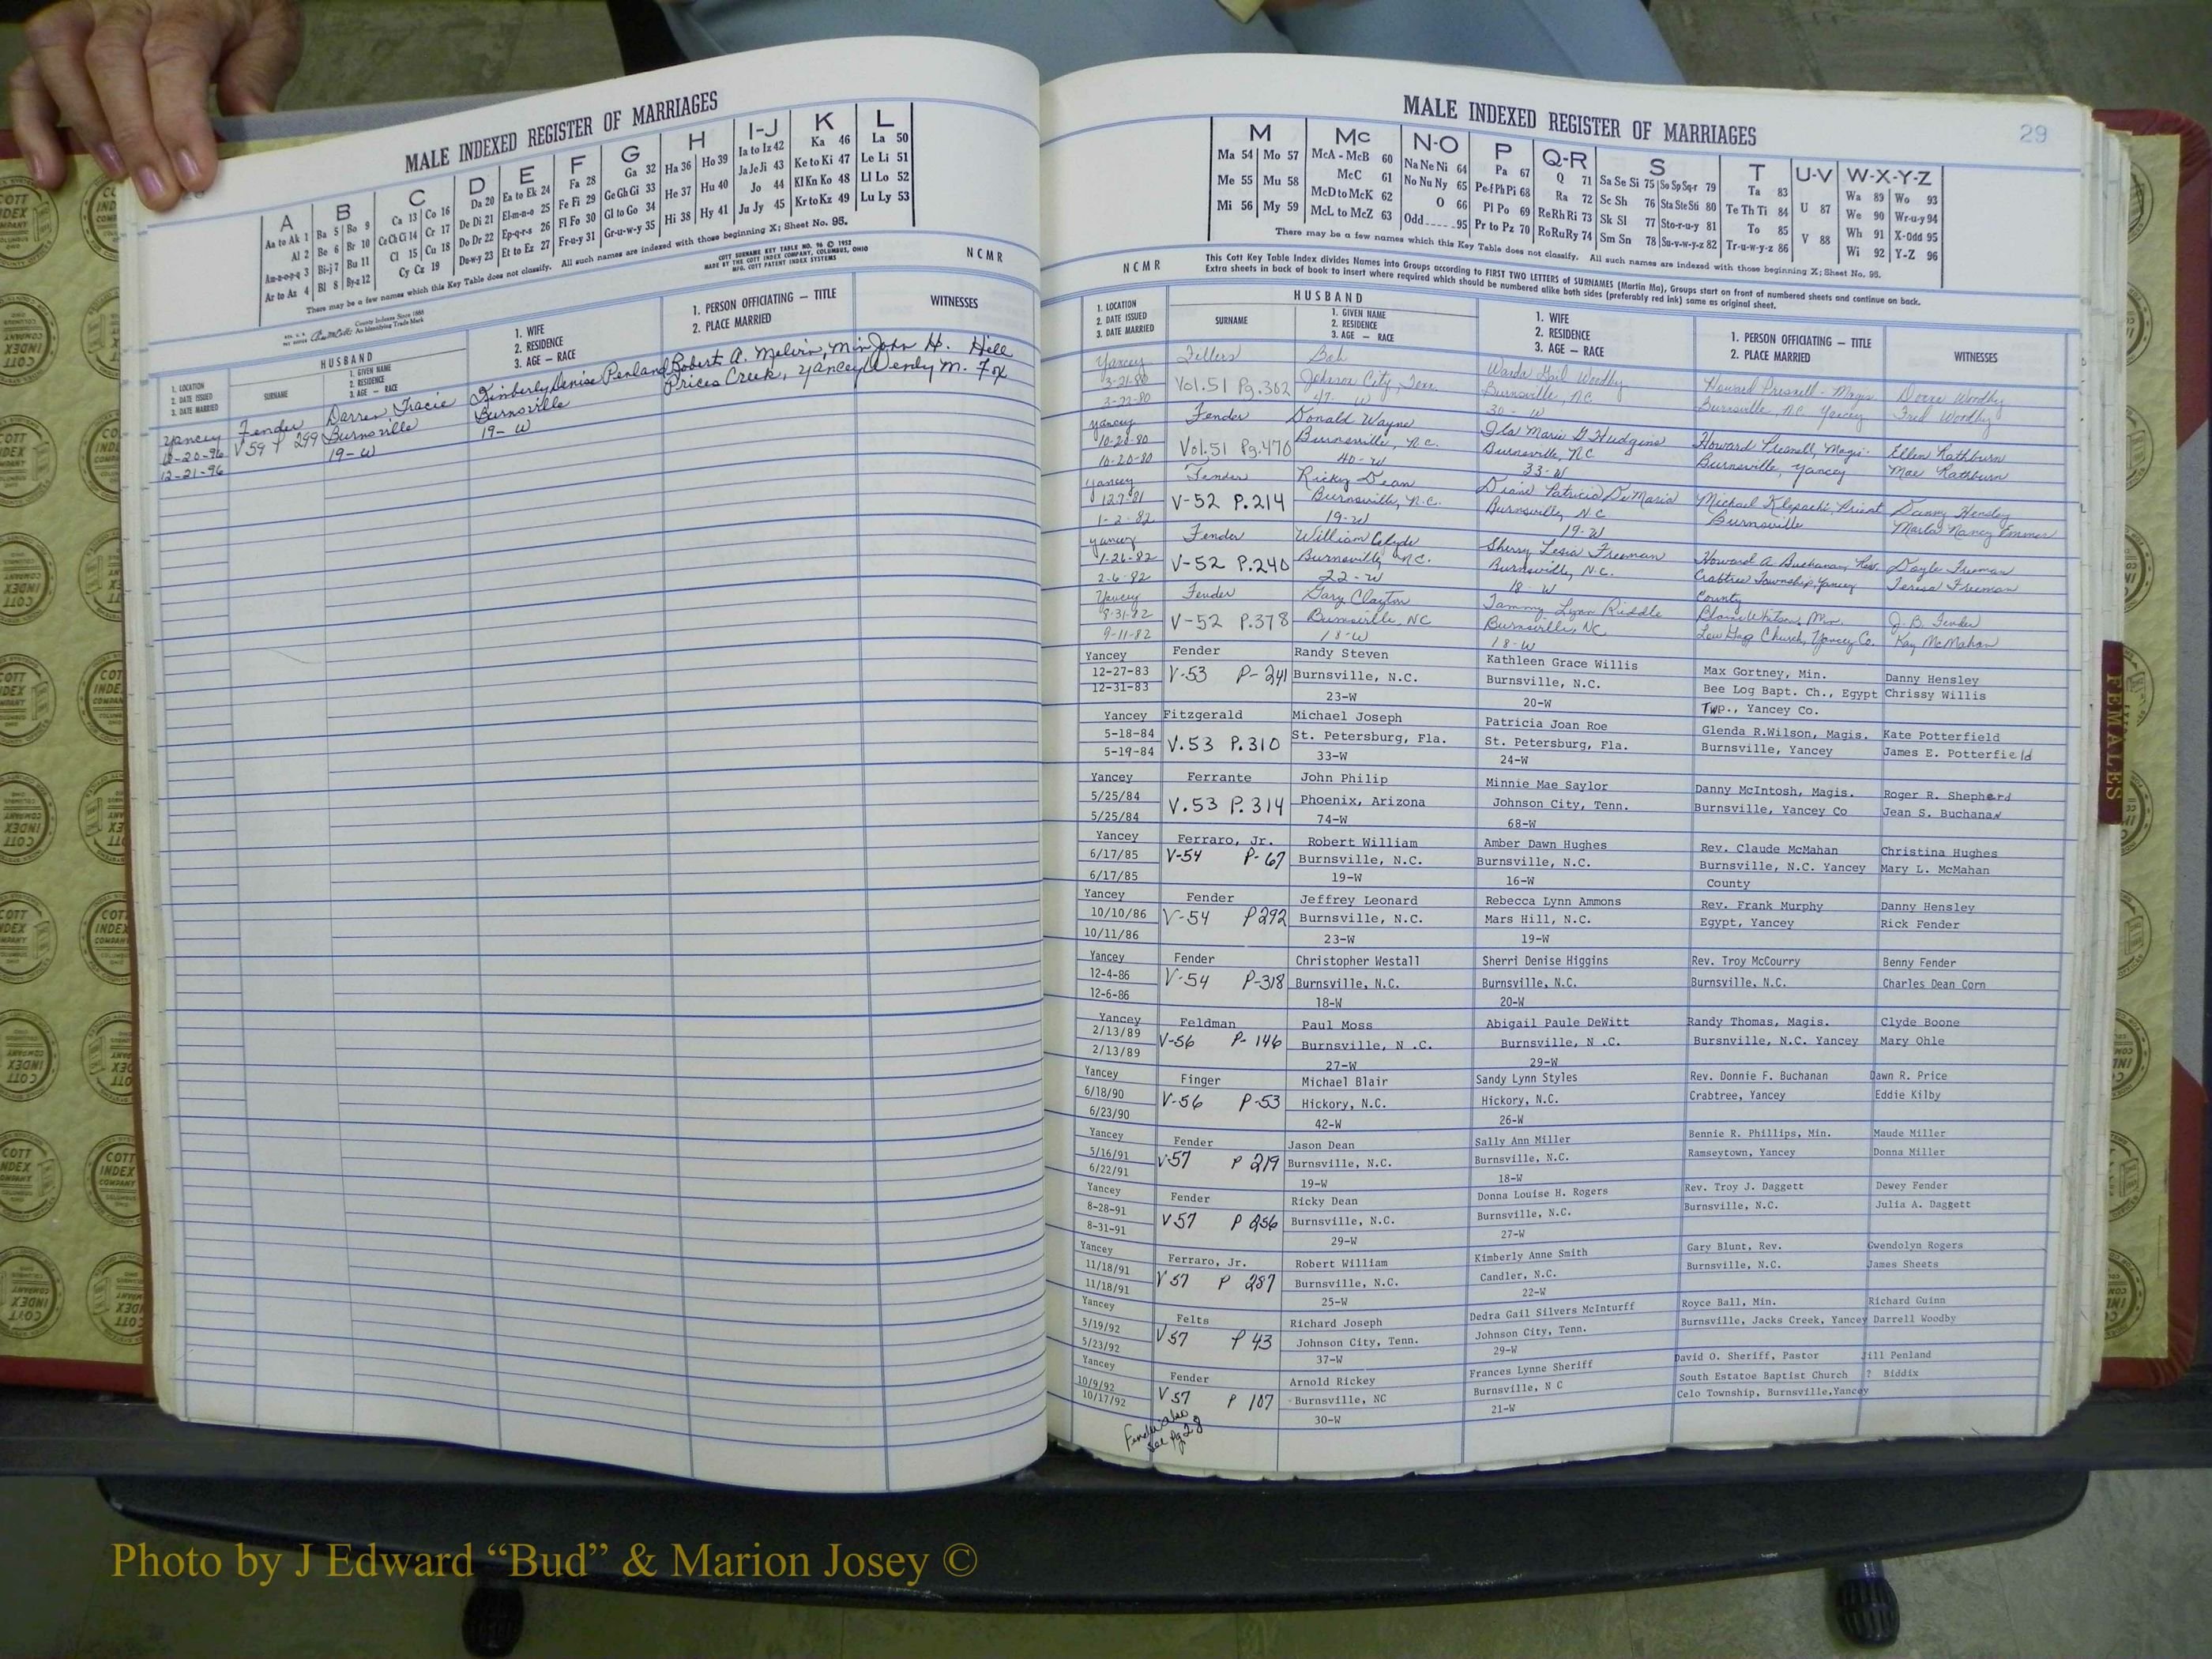 MALE INDEXED REGISTER OF MARRIAGES
A B C D E F G H I-J K L
Aa to Ak 1 Ba 5 Bo 9 Ca 13 Co 16 Da 20 Ea to Ek 24 Fa 28 Ga 32 Ha 36 Ho 39 Ia to Iz 42 Ka 46 La 50
Al 2 Be 6 Br 10 Ce Ch Ci 14 Cr 17 De Di 21 El-m-n-o 25 Fe Fi 29 Ge Gh Gi 33 He 37 Hu 40 Ja Je Ji 43 Ke to Ki 47 Le Li 51
Am-n-o-p-q 3 Bi-j 7 Bu 11 Cl 15 Cu 18 Do Dr 22 Ep-q-r-s 26 Fl Fo 30 Gl to Go 34 Hi 38 Hy 41 Jo 44 Kl Kn Ko 48 Ll Lo 52
Ar to Az 4 Bl 8 By-z 12 Cy Cz 19 Du-w-y 23 Et to Ez 27 Fr-u-y 31 Gr-u-w-y 35 Ju Jy 45 Kr to Kz 49 Lu Ly 53
There may be a few names which this Key Table does not classify. All such names are indexed with those beginning X; Sheet No. 95.
COTT SURNAME KEY TABLE NO. 96 © 1952
MADE BY THE COTT INDEX COMPANY, COLUMBUS, OHIO
MFG. COTT PATENT INDEX SYSTEMS
N C M R
County Indexes Since 1888
An Identifying Trade Mark
HUSBAND
1. LOCATION
2. DATE ISSUED
3. DATE MARRIED
SURNAME
1. GIVEN NAME
2. RESIDENCE
3. AGE — RACE
1. WIFE
2. RESIDENCE
3. AGE — RACE
1. PERSON OFFICIATING — TITLE
2. PLACE MARRIED
WITNESSES
Yancey Fender Darren Tracie Kimberly Denise Penland Robert A. Melvin, Min John H. Hill
12-20-96 V 59 P 299 Burnsville Burnsville Prices Creek, Yancey Wendy M. Fox
12-21-96 19-W 19-W
MALE INDEXED REGISTER OF MARRIAGES
29
M Mc N-O P Q-R S T U-V W-X-Y-Z
Ma 54 Mo 57 McA - McB 60 Na Ne Ni 64 Pa 67 Q 71 Sa Se Si 75 So Sp Sq-r 79 Ta 83 U 87 Wa 89 Wo 93
Me 55 Mu 58 McC 61 No Nu Ny 65 Pe-f Ph Pi 68 Ra 72 Sc Sh 76 Sta Ste Sti 80 Te Th Ti 84 V 88 We 90 Wr-u-y 94
Mi 56 My 59 McD to McK 62 O 66 Pl Po 69 Re Rh Ri 73 Sk Sl 77 Sto-r-u-y 81 To 85 Wh 91 X-Odd 95
McL to McZ 63 Odd 95 Pr to Pz 70 Ro Ru Ry 74 Sm Sn 78 Su-v-w-y-z 82 Tr-u-w-y-z 86 Wi 92 Y-Z 96
There may be a few names which this Key Table does not classify. All such names are indexed with those beginning X; Sheet No. 95.
N C M R
This Cott Key Table Index divides Names into Groups according to FIRST TWO LETTERS of SURNAMES (Martin Ma), Groups start on front of numbered sheets and continue on back.
Extra sheets in back of book to insert where required which should be numbered alike both sides (preferably red ink) same as original sheet.
HUSBAND
1. LOCATION
2. DATE ISSUED
3. DATE MARRIED
SURNAME
1. GIVEN NAME
2. RESIDENCE
3. AGE — RACE
1. WIFE
2. RESIDENCE
3. AGE — RACE
1. PERSON OFFICIATING — TITLE
2. PLACE MARRIED
WITNESSES
Yancey Fillers Bob Warda Gail Woodby Howard Presnell - Magis
3-21-80 Vol.51 Pg.362 Johnson City, Tenn Burnsville, NC Burnsville, N.C. Yancey Woodby
3-22-80 47- W 30- W Fred Woodby
Yancey Fender Donald Wayne Ila Marie G Hudgins Howard Presnell, Magis- Ellen Rathburn
10-20-80 Vol.51 Pg.470 Burnsville, N.C. Burnsville, N.C Burnsville, Yancey Mae Rathburn
10-20-80 40-W 33-W
Yancey Fender Ricky Dean Diane Patricia DeMaria Michael Klepacki, Priest Danny Hensley
V-52 P.214 Burnsville, N.C. Burnsville, N.C Burnsville Marla Nancy Emmer
1-2-82 19-W 19-W
Yancey Fender William Clyde Sherry Lesia Freeman Howard A Buchanan, Rev. Doyle Freeman
1-26-82 V-52 P.240 Burnsville, N.C. Burnsville, N.C. Crabtree Township, Yancey Teresa Freeman
2-6-82 22-W 18-W County
Yancey Fender Gary Clayton Tammy Lynn Riddle Blaine Whitson, Min J. B. Fender
8-31-82 V-52 P.378 Burnsville, NC Burnsville, NC Low Gap Church, Yancey Co. Kay McMahan
9-11-82 18-W 18-W
Yancey Fender Randy Steven Kathleen Grace Willis Max Gortney, Min. Danny Hensley
12-27-83 V-53 P-241 Burnsville, N.C. Burnsville, N.C. Bee Log Bapt. Ch., Egypt Chrissy Willis
12-31-83 23-W 20-W Twp., Yancey Co.
Yancey Fitzgerald Michael Joseph Patricia Joan Roe Glenda R.Wilson, Magis. Kate Potterfield
5-18-84 V.53 P.310 St. Petersburg, Fla. St. Petersburg, Fla. Burnsville, Yancey James E. Potterfield
5-19-84 33-W 24-W
Yancey Ferrante John Philip Minnie Mae Saylor Danny McIntosh, Magis. Roger R. Shepherd
5/25/84 V.53 P.314 Phoenix, Arizona Johnson City, Tenn. Burnsville, Yancey Co Jean S. Buchanan
5/25/84 74-W 68-W
Yancey Ferraro, Jr. Robert William Amber Dawn Hughes Rev. Claude McMahan Christina Hughes
6/17/85 V-54 P-67 Burnsville, N.C. Burnsville, N.C. Burnsville, N.C. Yancey Mary L. McMahan
6/17/85 19-W 16-W County
Yancey Fender Jeffrey Leonard Rebecca Lynn Ammons Rev. Frank Murphy Danny Hensley
10/10/86 V-54 P292 Burnsville, N.C. Mars Hill, N.C. Egypt, Yancey Rick Fender
10/11/86 23-W 19-W
Yancey Fender Christopher Westall Sherri Denise Higgins Rev. Troy McCourry Benny Fender
12-4-86 V-54 P-318 Burnsville, N.C. Burnsville, N.C. Burnsville, N.C. Charles Dean Corn
12-6-86 18-W 20-W
Yancey Feldman Paul Moss Abigail Paule DeWitt Randy Thomas, Magis. Clyde Boone
2/13/89 V-56 P-146 Burnsville, N .C. Burnsville, N .C. Bursnville, N.C. Yancey Mary Ohle
2/13/89 27-W 29-W
Yancey Finger Michael Blair Sandy Lynn Styles Rev. Donnie F. Buchanan Dawn R. Price
6/18/90 V-56 P-53 Hickory, N.C. Hickory, N.C. Crabtree, Yancey Eddie Kilby
6/23/90 42-W 26-W
Yancey Fender Jason Dean Sally Ann Miller Bennie R. Phillips, Min. Maude Miller
5/16/91 V57 P 219 Burnsville, N.C. Burnsville, N.C. Ramseytown, Yancey Donna Miller
6/22/91 19-W 18-W
Yancey Fender Ricky Dean Donna Louise H. Rogers Rev. Troy J. Daggett Dewey Fender
8-28-91 V57 P 256 Burnsville, N.C. Burnsville, N.C. Burnsville, N.C. Julia A. Daggett
8-31-91 29-W 27-W
Yancey Ferraro, Jr. Robert William Kimberly Anne Smith Gary Blunt, Rev. Gwendolyn Rogers
11/18/91 V57 P 287 Burnsville, N.C. Candler, N.C. Burnsville, N.C. James Sheets
11/18/91 25-W 22-W
Yancey Felts Richard Joseph Dedra Gail Silvers McInturff Royce Ball, Min. Richard Guinn
5/19/92 V57 P 43 Johnson City, Tenn. Johnson City, Tenn. Burnsville, Jacks Creek, Yancey Darrell Woodby
5/23/92 37-W 29-W
Yancey Fender Arnold Rickey Frances Lynne Sheriff David O. Sheriff, Pastor Jill Penland
10/9/92 V57 P 107 Burnsville, NC Burnsville, N C South Estatoe Baptist Church ? Biddix
10/17/92 30-W 21-W Celo Township, Burnsville,Yancey
Fender also
see Pg 28
FEMALES
Photo by J Edward “Bud” & Marion Josey ©